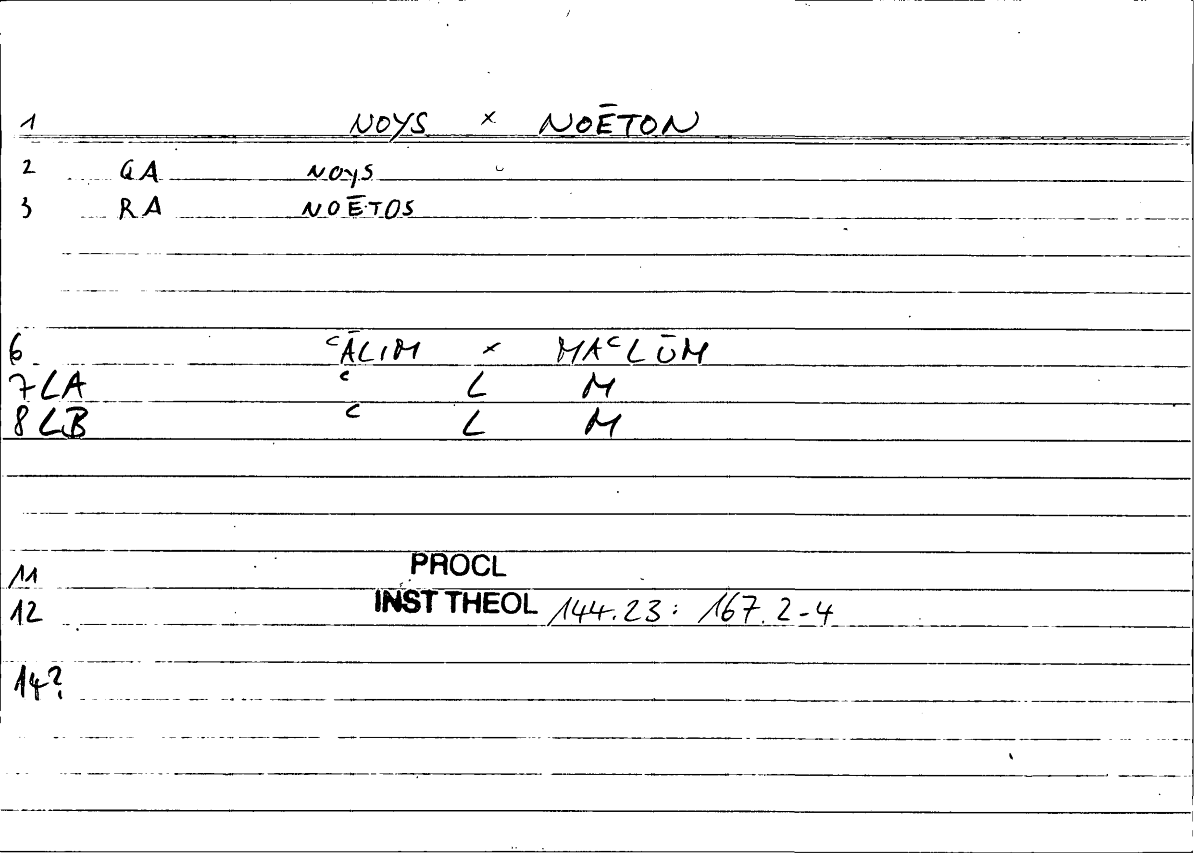 1 NOYS × NOĒTON
2 GA NOYS
3 RA NOĒTOS
6 ᶜĀLIM × MAᶜLŪM
7 LA ᶜ L M
8 LB ᶜ L M
11 PROCL
12 INST THEOL 144.23: 167.2-4
14?